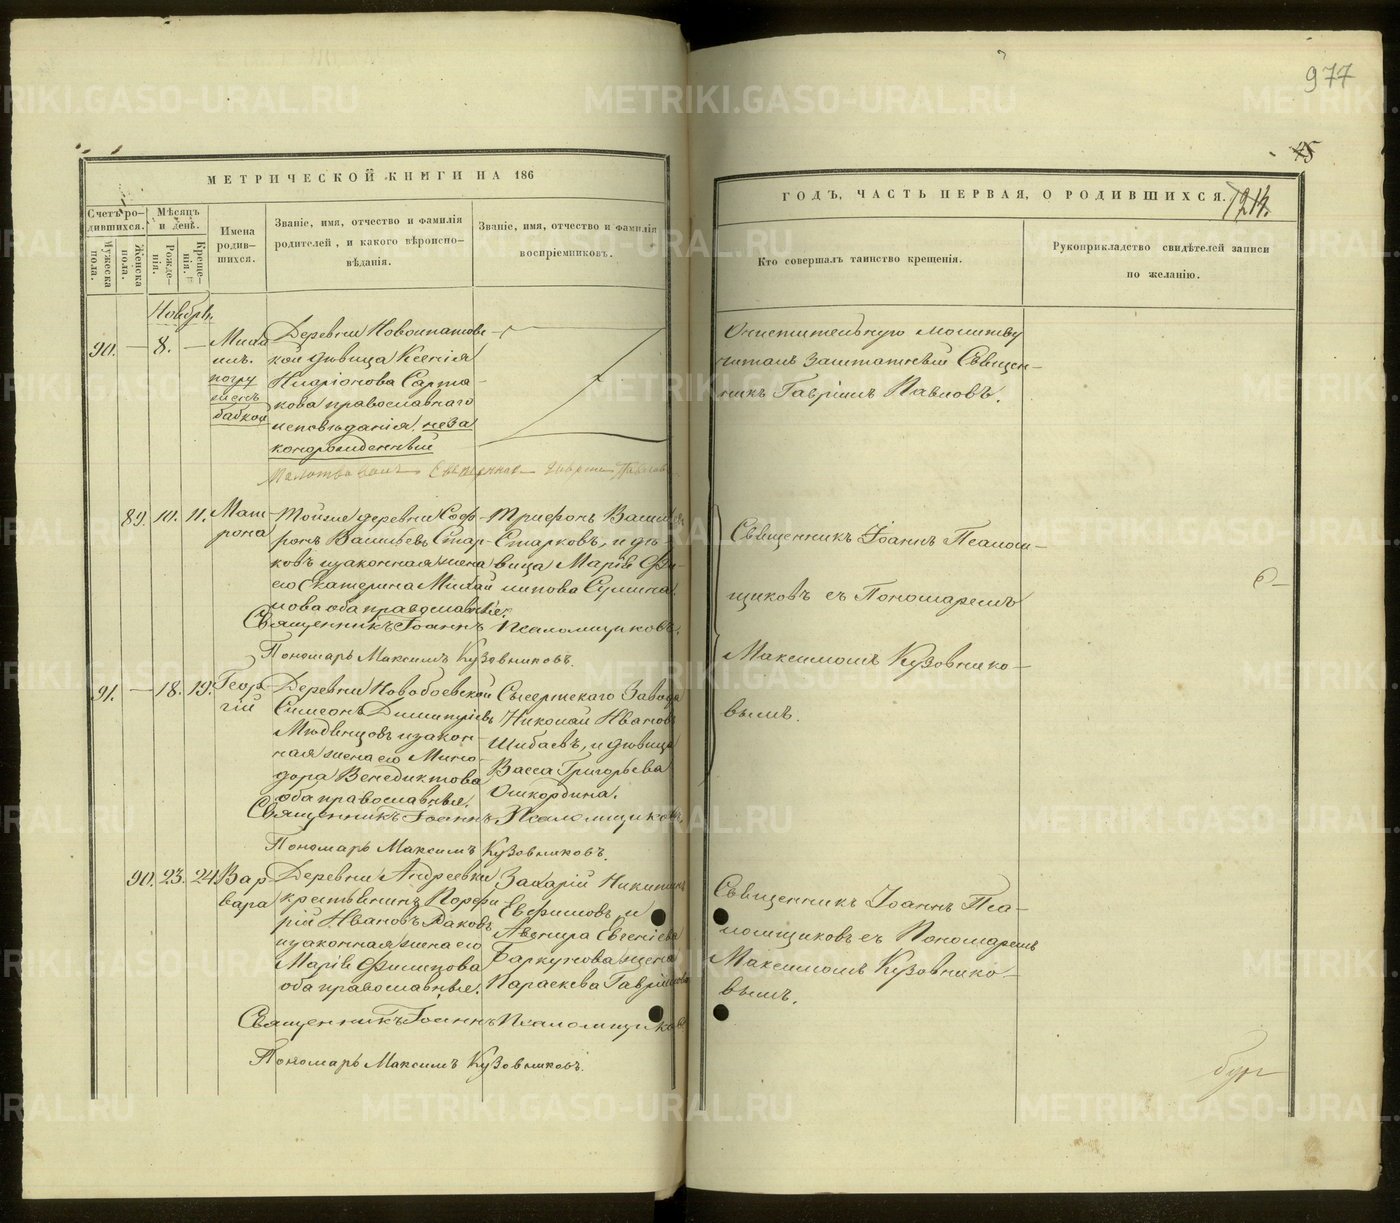 977
15
1214.
МЕТРИЧЕСКОЙ КНИГИ НА 186
ГОДЪ, ЧАСТЬ ПЕРВАЯ, О РОДИВШИХСЯ.
Счетъ ро-
дившихся.
Мужеска пола.
Женска пола.
Мѣсяцъ
и день.
Рожде-
нія.
Креще-
нія.
Имена
родив-
шихся.
Званіе, имя, отчество и фамилія
родителей, и какого вѣроиспо-
вѣданія.
Званіе, имя, отчество и фамилія
воспріемниковъ.
Кто совершалъ таинство крещенія.
Рукоприкладство свидѣтелей записи
по желанію.
Ноябрь.
90. — 8. —
Миха
илъ.
погру
женъ
бабкой
Деревни Новоипатовс-
кой дѣвица Ксенія
Иларіонова Сарта-
кова православнаго
исповѣданія. неза
конорожденный
Очистительную молитву
читалъ заштатный Священ-
никъ Гавріилъ Павловъ.
89. 10. 11.
Мат-
рона
Тойже деревни Соф-
ронъ Васильевъ Стар-
ковъ и законная жена
его Екатерина Михай
лова оба православные.
Трифонъ Васильевъ
Старковъ, и дѣ-
вица Марія Фи-
липова
Священникъ Іоаннъ Псаломщиковъ.
Пономарь Максимъ Кузовниковъ.
Священникъ Іоаннъ Псалом-
щиковъ съ Пономаремъ
Максимомъ Кузовнико-
вымъ.
91. — 18. 19.
Геор-
гій
Деревни Новобоевской
Симеонъ Димитріевъ
и закон-
ная жена его Мино-
дора Венедиктова
оба православные.
Сысертскаго Завода
Николай Ивановъ
Шибаевъ, и дѣвица
Васса Григорьева
Ошкордина.
Священникъ Іоаннъ Псаломщиковъ.
Пономарь Максимъ Кузовниковъ.
90. 23. 24.
Вар-
вара
Деревни Андреевки
крестьянинъ Порфи
рій Ивановъ Раковъ
и законная жена его
Марія Филипова
оба православные.
Захарій Никитинъ
Ефимовъ, и
Евгеніева
жена
Параскева Гавріилова
Священникъ Іоаннъ Псаломщиковъ
Пономарь Максимъ Кузовниковъ.
Священникъ Іоаннъ Пса-
ломщиковъ съ Пономаремъ
Максимомъ Кузовнико-
вымъ.
METRIKI.GASO-URAL.RU